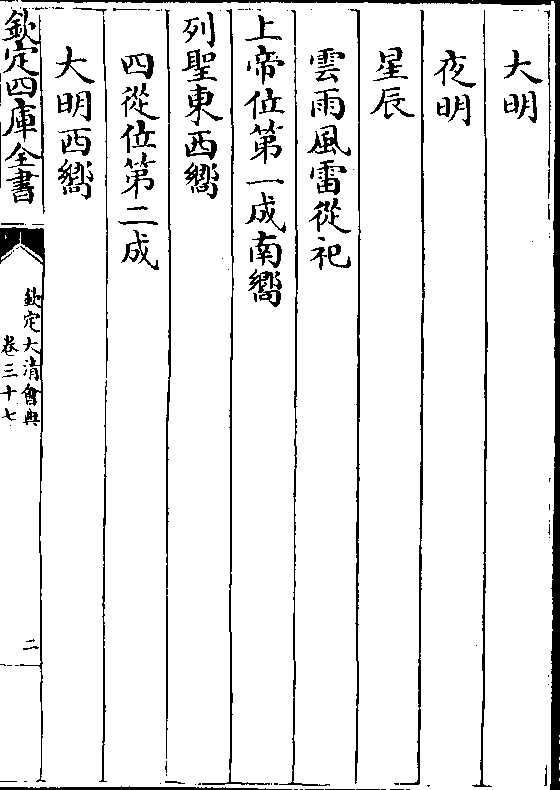 大明
夜明
星辰
雲雨風雷從祀
上帝位第一成南嚮
列聖東西嚮
四從位第二成
大明西嚮
欽定四庫全書
欽定大清會典
卷三十七
二